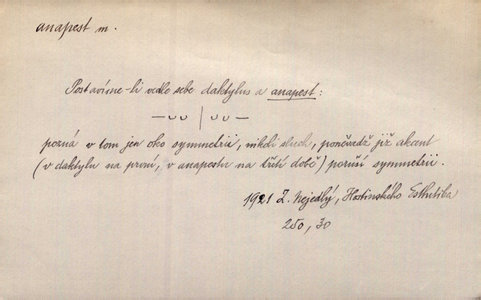 anapest m.
Postavíme-li vedle sebe daktylus a anapest:
— ᴗ ᴗ | ᴗ ᴗ —
pozná v tom jen oko symmetrii, nikoli sluch, poněvadž již akcent
(v daktylu na první, v anapestu na třetí době) poruší symmetrii.
1921 Z. Nejedlý, Hostinského Esthetika
250, 30